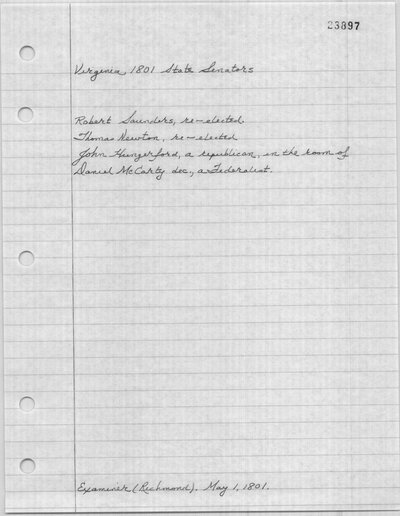 23897
Virginia 1801 State Senators
Robert Saunders, re-elected.
Thomas Newton, re-elected
John Hungerford, a republican, in the room of
Daniel McCarty dec., a Federalist.
Examiner (Richmond). May 1, 1801.